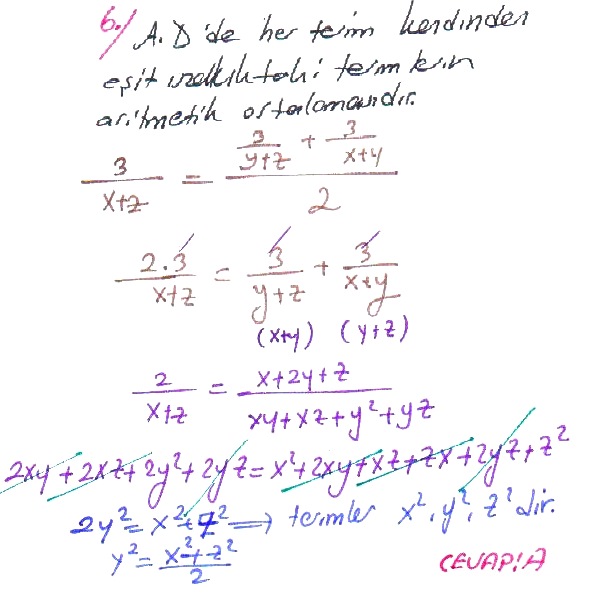 6./ A.D'de her terim kendinden
eşit uzaklıktaki terimlerin
aritmetik ortalamasıdır.
3/(x+z) = (3/(y+z) + 3/(x+y))/2
2.3/(x+z) = 3/(y+z) + 3/(x+y)
(x+y) (y+z)
2/(x+z) = (x+2y+z)/(xy+xz+y²+yz)
2xy+2xz+2y²+2yz=x²+2xy+xz+zx+2yz+z²
2y²=x²+z² ⇒ terimler x², y², z² dir.
y²=(x²+z²)/2
CEVAP:A